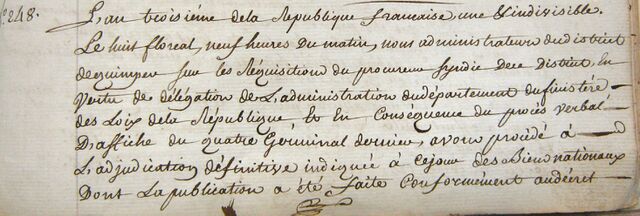 N.º 248.
L'an troisiéme dela République francaise, une & indivisible.
Le huit floreal, neuf heures Du matin, nous administrateurs du district
de quimper sur les Réquisition du procureur Syndic Dece District, En
Vertu de délégation de L'administration du département du finistére
des Loix dela République Et En Conséquence du procès verbal
D'affiche du quatre Germinal dernier, avons procédé à
L'adjudication définitive indiquée à cejour des Biens nationaux
Dont La publication a été faite Conformément audécret